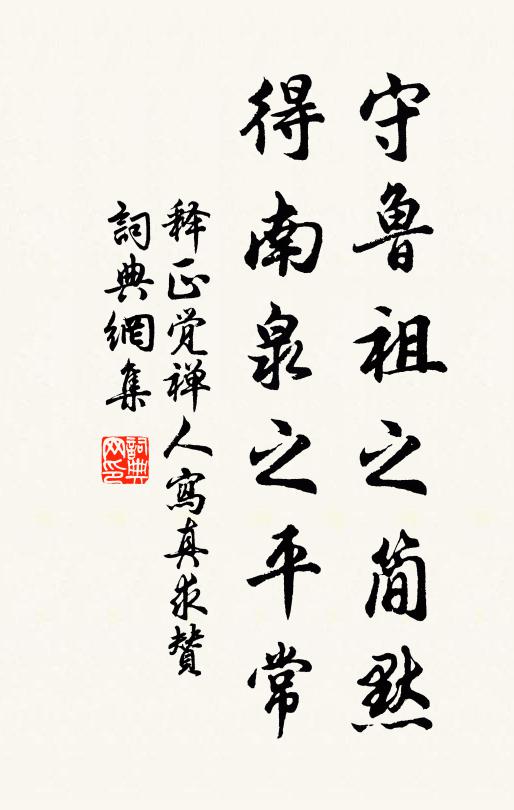 守魯祖之简默
得南泉之平常
释正觉禅人寫真求贊
詞典網集
詞典網印